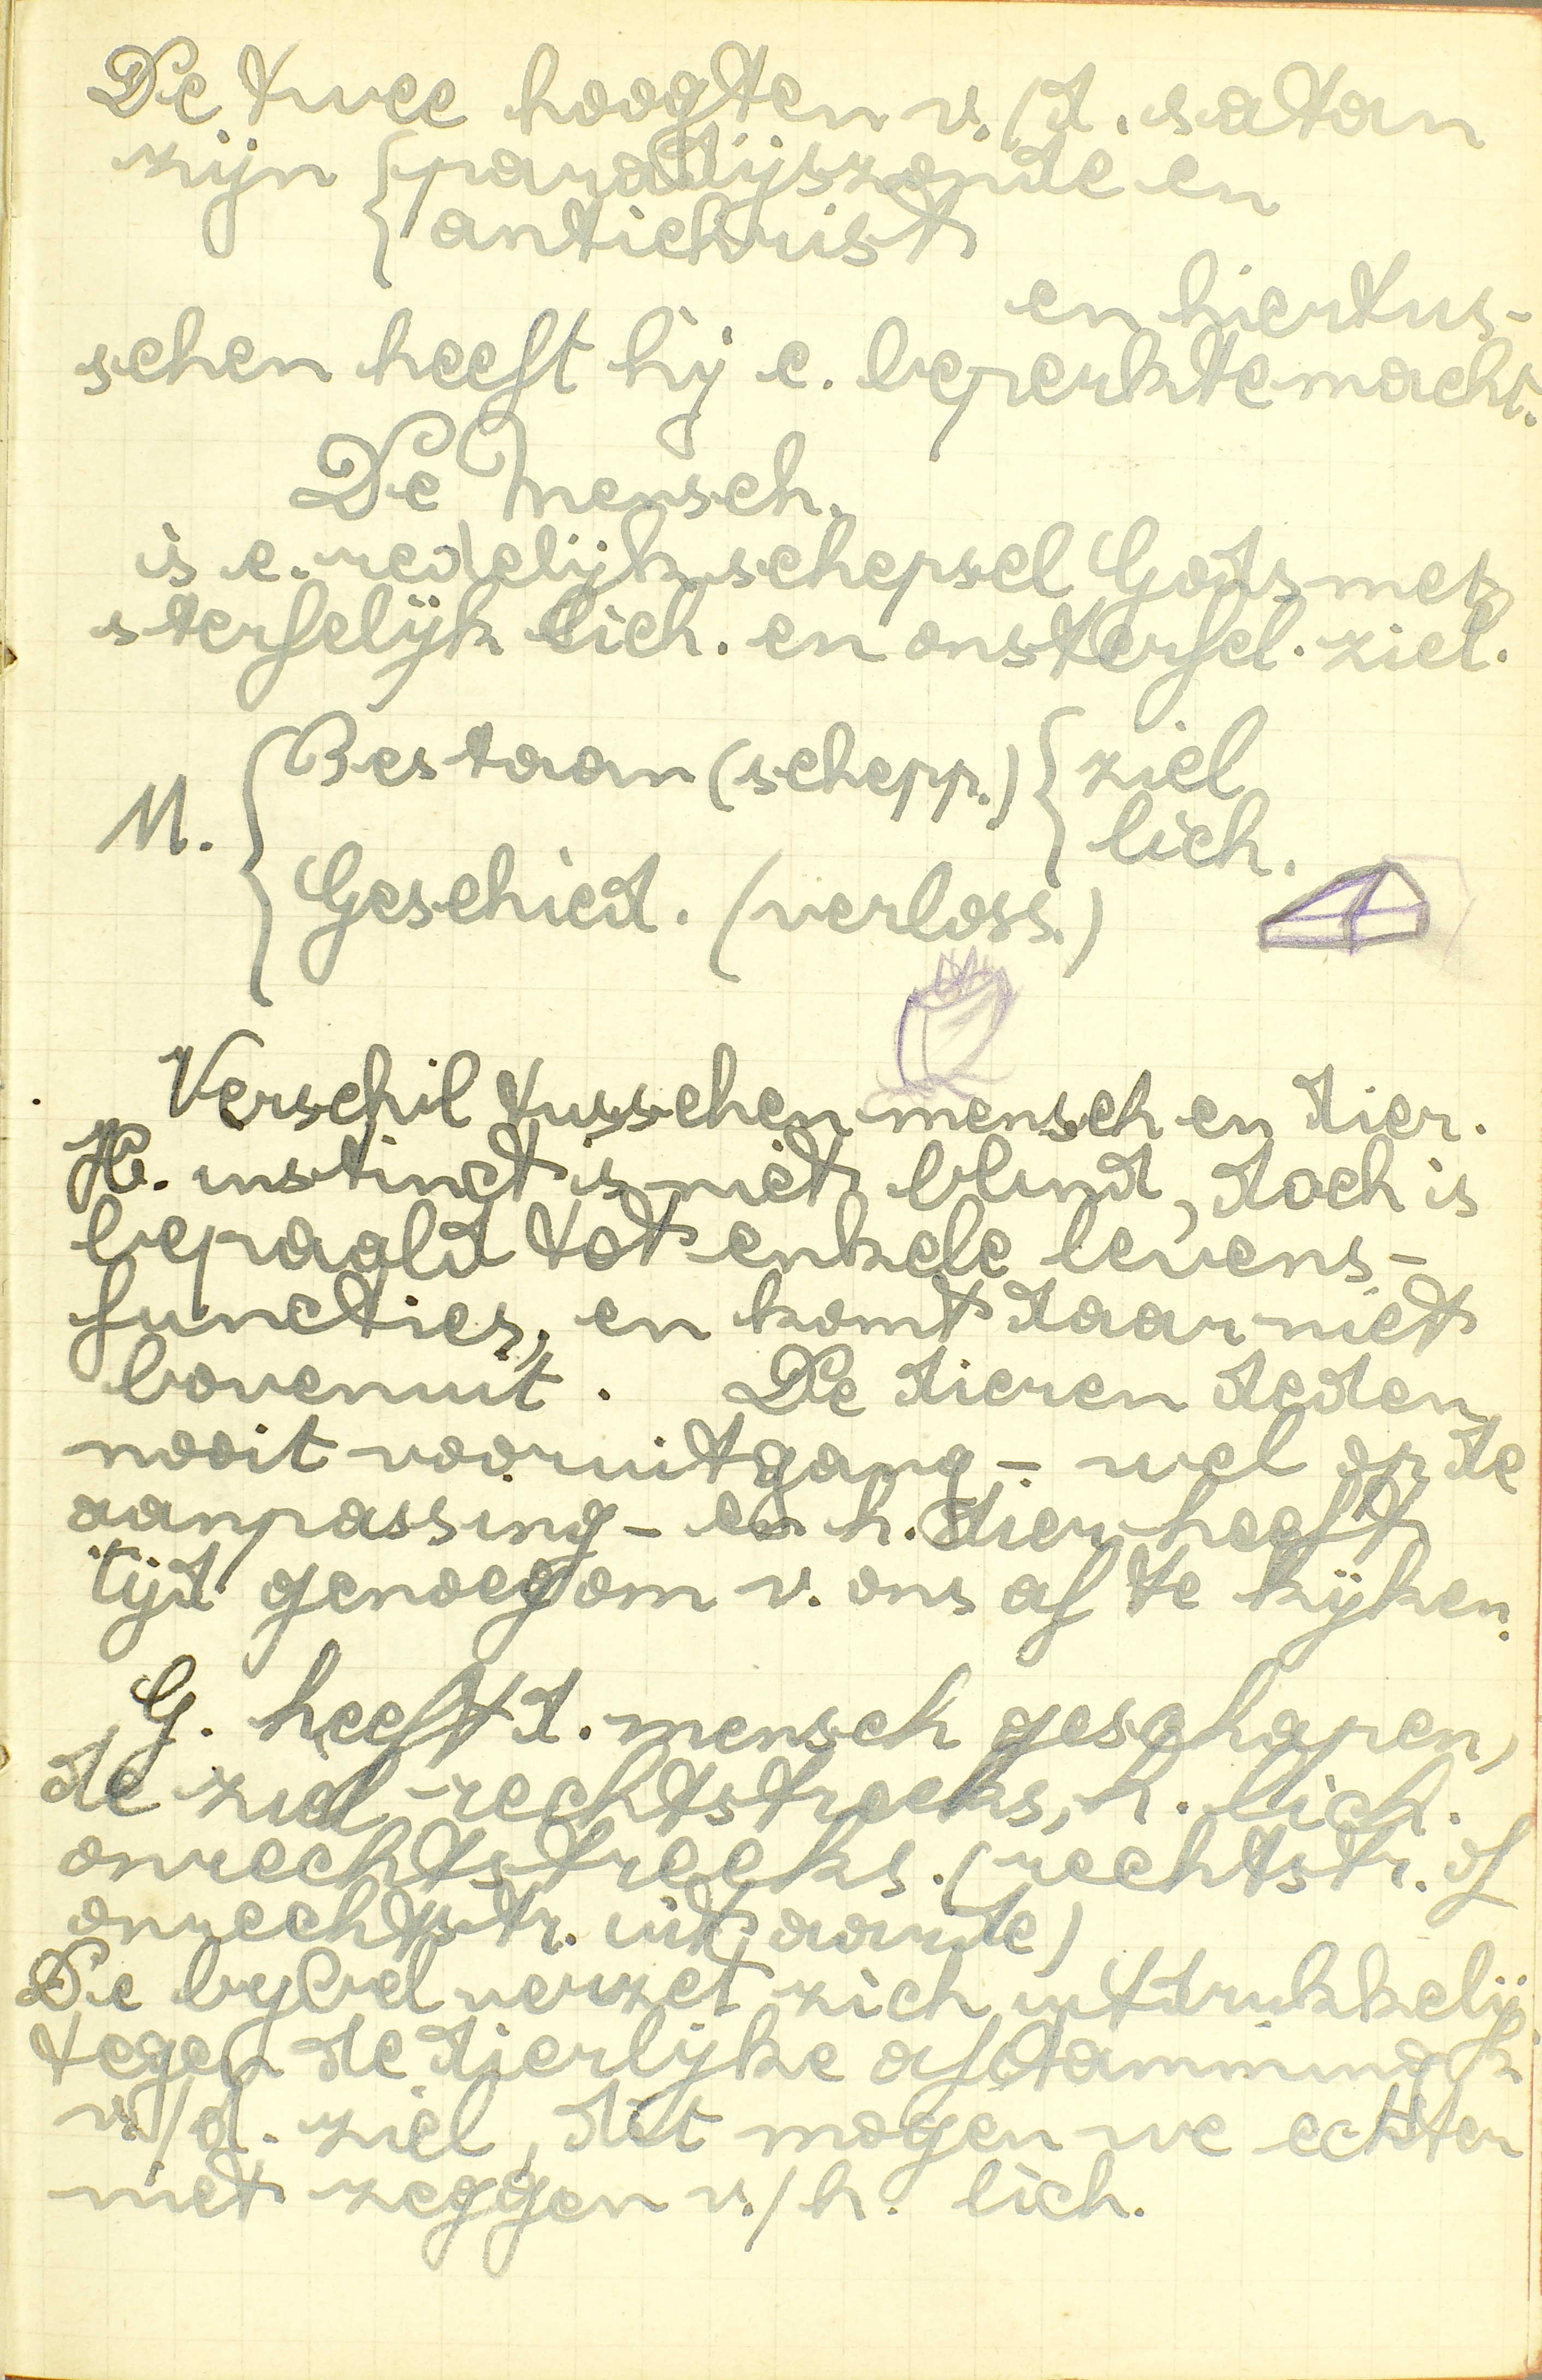 De twee hoogten v./d. satan
zijn { paradijszonde en
antichrist
en hiertus-
schen heeft hij e. beperkte macht.
De Mensch.
is e. redelijk schepsel Gods met
sterfelijk lich. en onsterfel. ziel.
M. { Bestaan (schepp.) { ziel
lich.
Geschied. (verloss.)
Verschil tusschen mensch en dier.
H. instinct is niet blind, doch is
bepaald tot enkele levens-
functies, en komt daar niet
bovenuit. De dieren deden
nooit vooruitgang - wel op de
aanpassing - en h. dier heeft
tijd genoeg om v. ons af te kijken.
G. heeft d. mensch geschapen,
de ziel rechtstreeks, h. lich.
onrechtstreeks. (rechtstr. of
onrechtstr. uit aarde)
De bijbel verzet zich uitdrukkelijk
tegen de dierlijke afstamming
v./d. ziel, dit mogen we echter
niet zeggen v./h. lich.